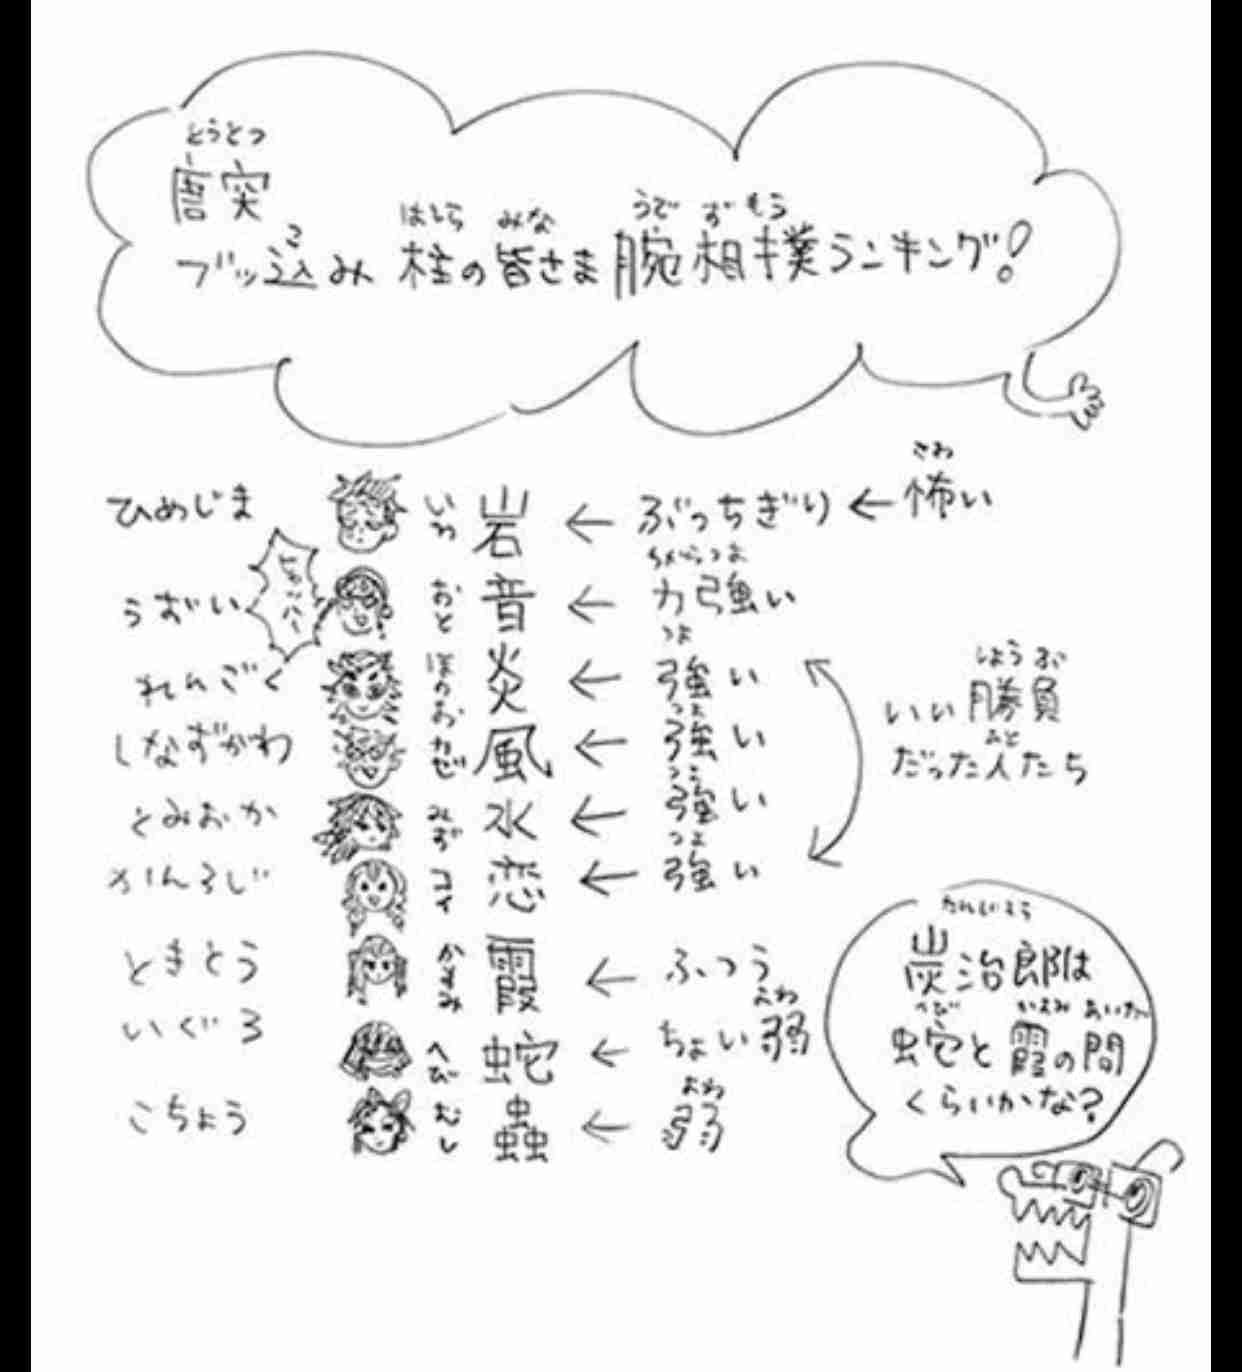 とうとつ
唐突
はしら みな うで ずもう
ブッ込み 柱の皆さま腕相撲ランキング!
こ
ひめじま いわ 岩 ← ぶっちぎり ← 怖い
こわ
うずい おと 音 ← 力強い
ちからづよ
れんごく ほのお 炎 ← 強い
つよ
しなずがわ かぜ 風 ← 強い
つよ
とみおか みず 水 ← 強い
つよ
かんろじ コイ 恋 ← 強い
つよ
しょうぶ
いい勝負
ひと
だった人たち
ときとう かすみ 霞 ← ふつう
いぐろ へび 蛇 ← ちょい弱
よわ
こちょう むし 蟲 ← 弱
よわ
たんじろう
炭治郎は
へび かすみ あいだ
蛇と霞の間
くらいかな?